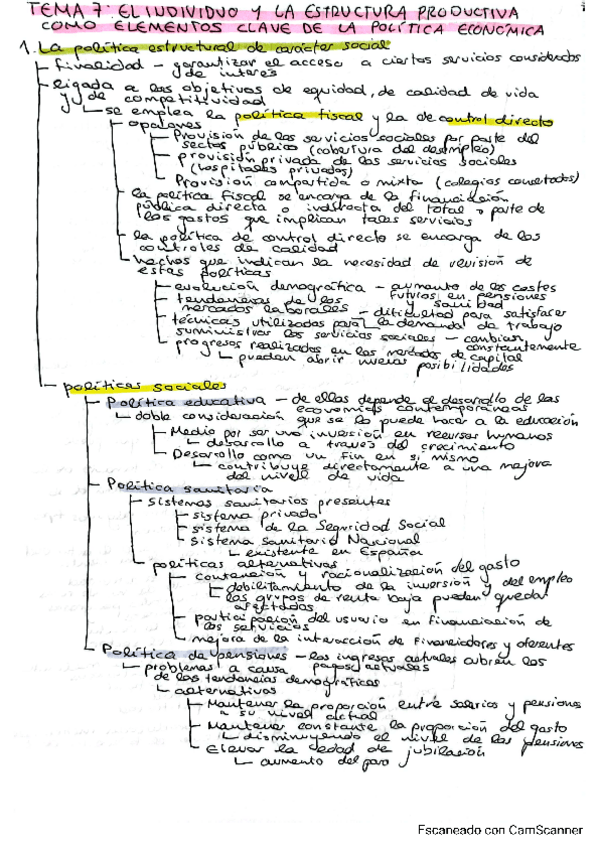 TEMA 7: EL INDIVIDUO Y LA ESTRUCTURA PRODUCTIVA
COMO ELEMENTOS CLAVE DE LA POLÍTICA ECONÓMICA
1. La política estructural de carácter social
finalidad - garantizar el acceso a ciertos servicios considerados
de interés
ligada a los objetivos de equidad, de calidad de vida
y de competitividad
se emplea la política fiscal y la de control directo
opciones
Provisión de los servicios sociales por parte del
sector público (cobertura del desempleo)
provisión privada de los servicios sociales
(hospitales privados)
Provisión compartida o mixta (colegios concertados)
la política fiscal se encarga de la financiación
pública directa o indirecta del total o parte de
los gastos que implican tales servicios
la política de control directo se encarga de los
controles de calidad
hechos que indican la necesidad de revisión de
estas políticas
evolución demográfica - aumento de los costes
futuros en pensiones
y sanidad
tendencias de los
mercados laborales - dificultad para satisfacer
la demanda de trabajo
técnicas utilizadas para
suministrar los servicios sociales - cambian
constantemente
progresos realizados en los mercados de capital
pueden abrir nuevas posibilidades
políticas sociales
Política educativa - de ellas depende el desarrollo de las
economías contemporáneas
doble consideración que se le puede hacer a la educación
Medio por ser una inversión en recursos humanos
desarrollo a través del crecimiento
Desarrollo como un fin en si mismo
contribuye directamente a una mejora
del nivel de vida
Política sanitaria
sistemas sanitarios presentes
sistema privado
sistema de la Seguridad Social
Sistema Sanitario Nacional
existente en España
políticas alternativas
contención y racionalización del gasto
debilitamiento de la inversión y del empleo
los grupos de renta baja pueden quedar
afectados
participación del usuario en financiación de
los servicios
mejora de la interacción de financiadores y oferentes
Política de pensiones - los ingresos actuales cubren los
pagos actuales
problemas a causa
de las tendencias demográficas
alternativas
Mantener la proporción entre salarios y pensiones
a su nivel actual
Mantener constante la proporción del gasto
disminuyendo el nivel de las pensiones
Elevar la edad de jubilación
aumento del paro
Escaneado con CamScanner